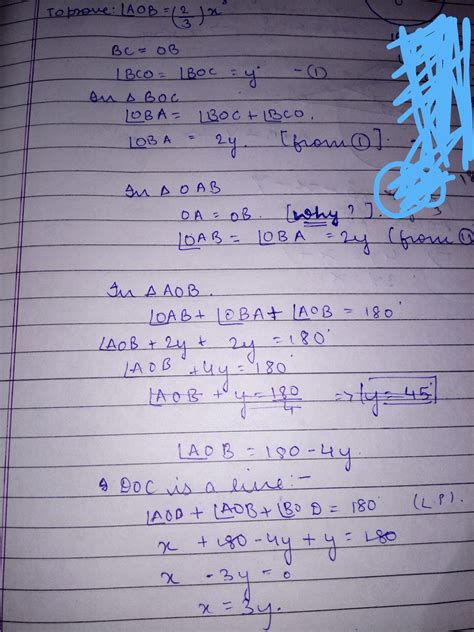 To prove: ∠AOB = (2/3) x°
BC = OB
∠BCO = ∠BOC = y° - (1)
In Δ BOC
∠OBA = ∠BOC + ∠BCO.
∠OBA = 2y. [from ①].
In Δ OAB
OA = OB. [why?].
∠OAB = ∠OBA = 2y (from
In Δ AOB.
∠OAB + ∠OBA + ∠AOB = 180°
∠AOB + 2y + 2y = 180°
∠AOB + 4y = 180°
∠AOB + y = 180/4 => ∠y = 45°
∠AOB = 180 - 4y.
DOC is a line:-
∠AOD + ∠AOB + ∠BOD = 180° (L.P).
x + 180 - 4y + y = 180
x - 3y = 0
x = 3y.